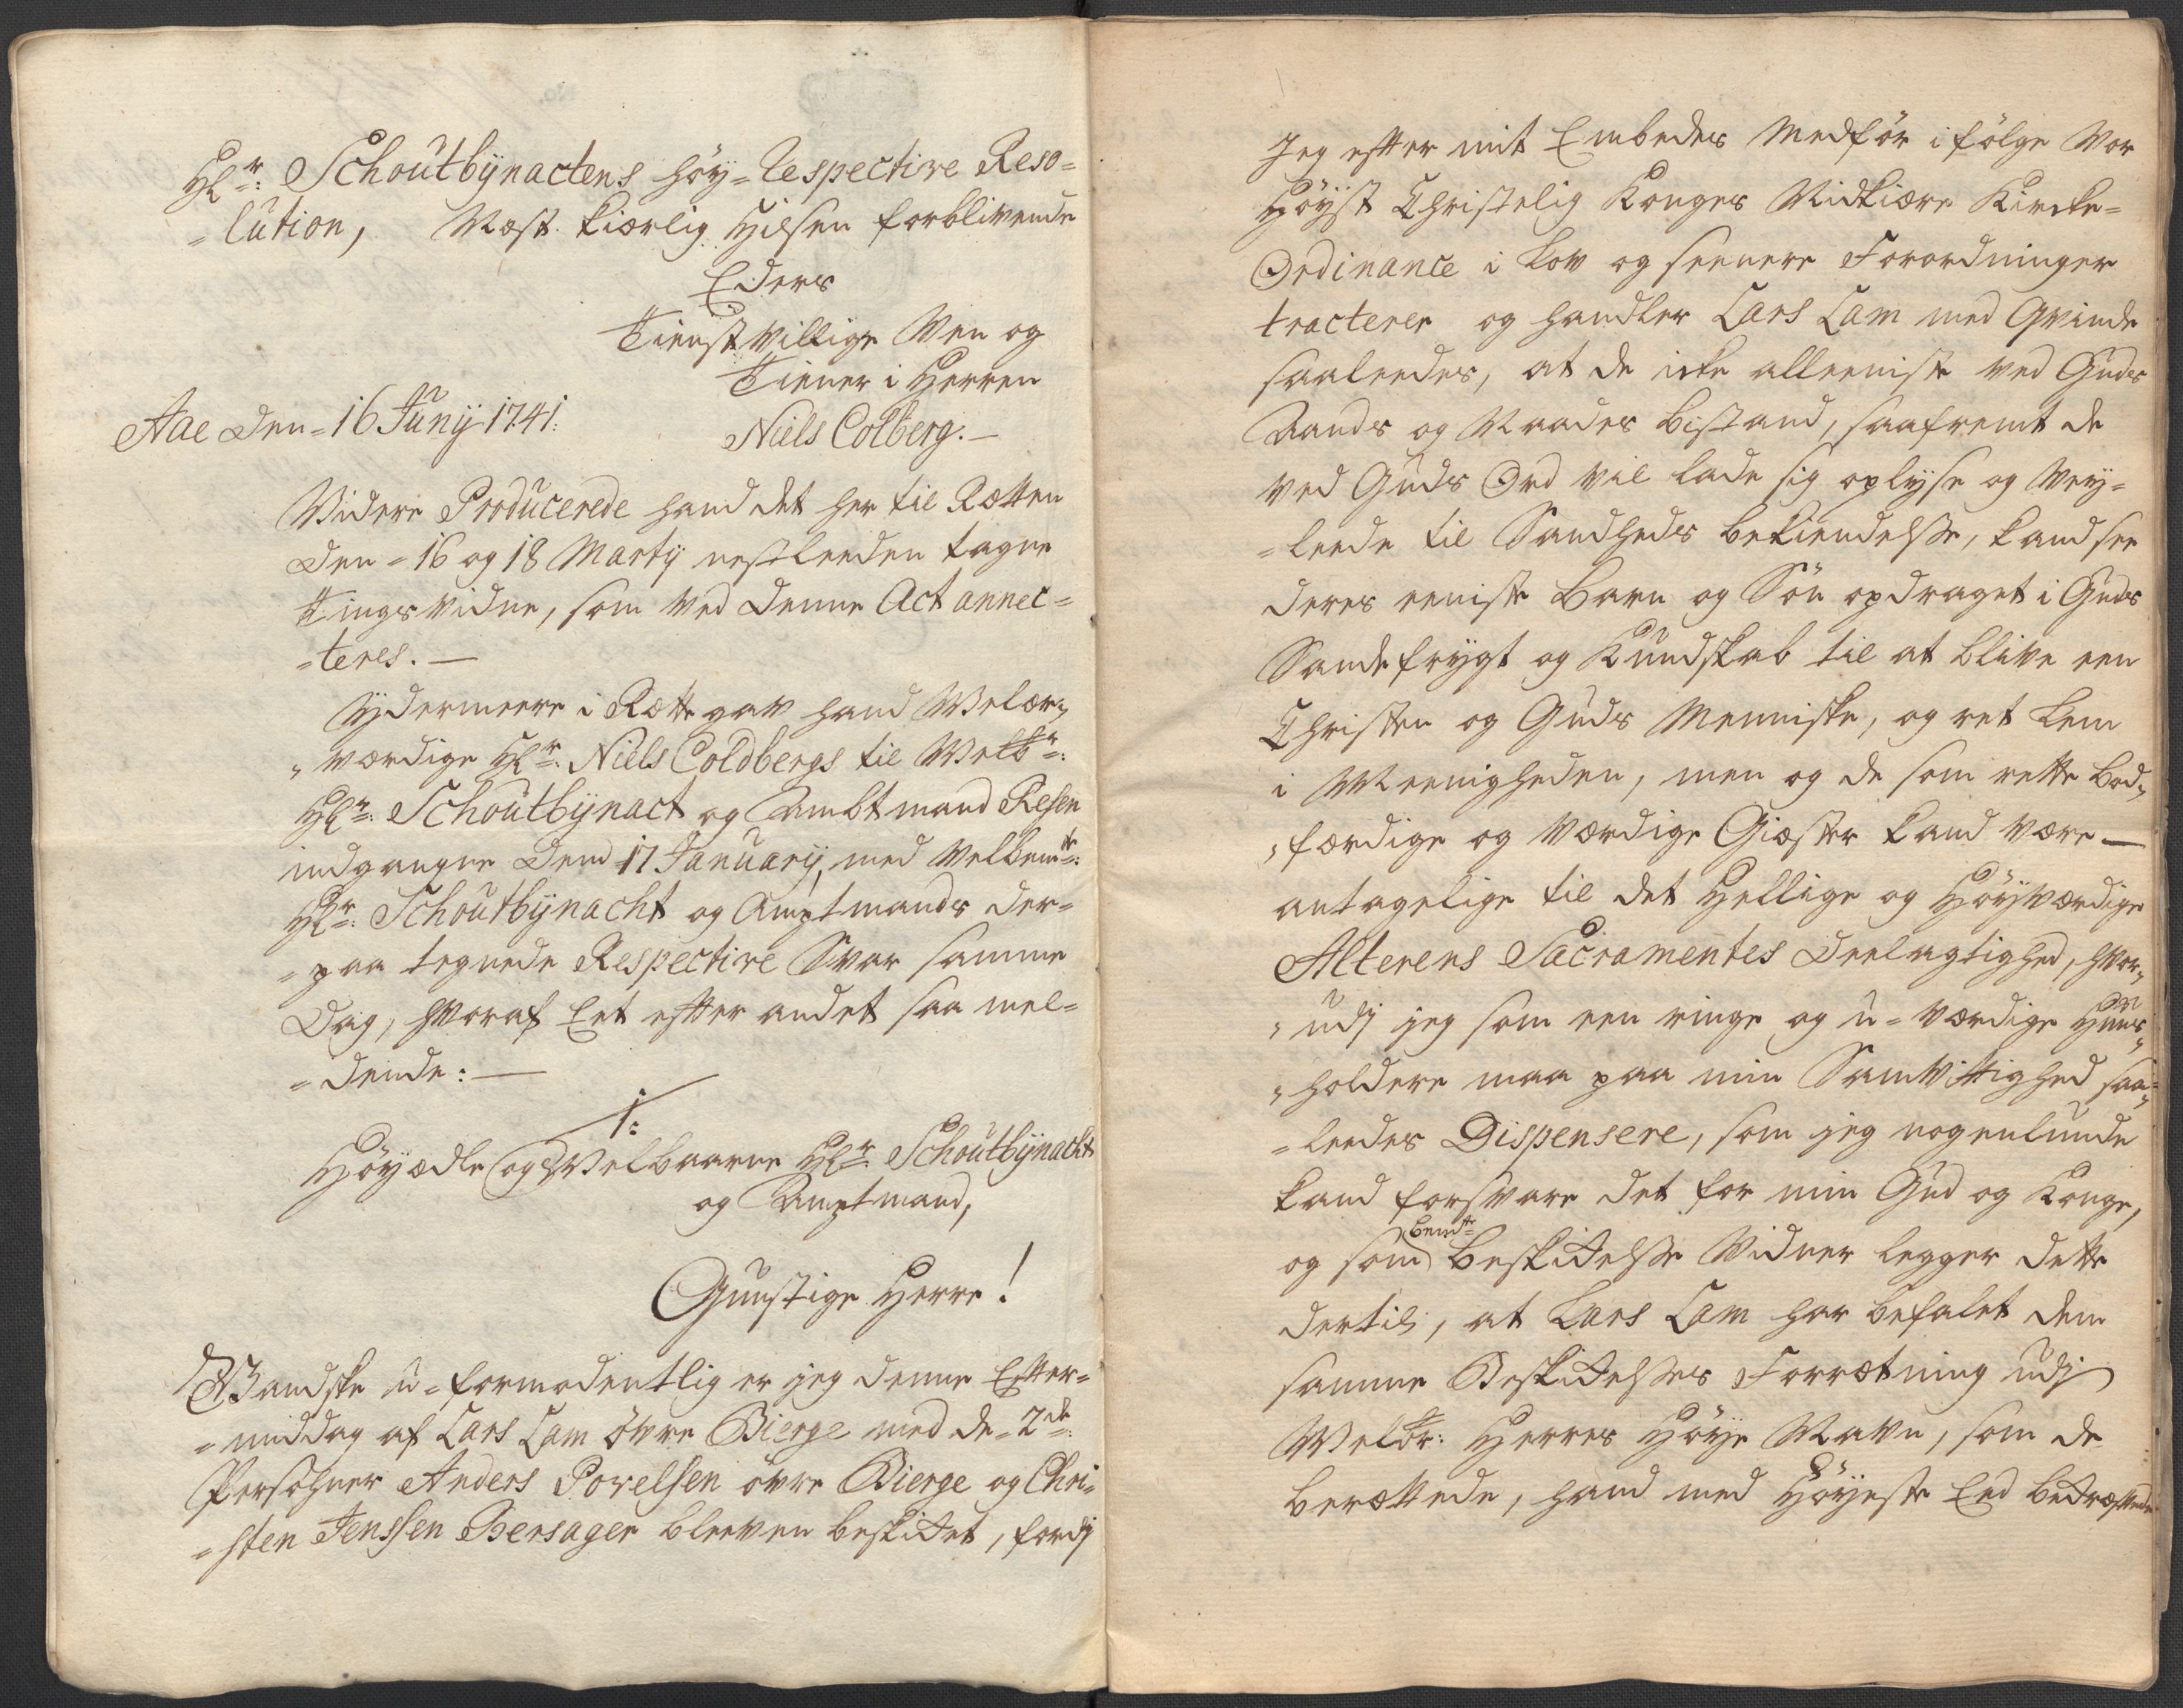 Hr: Schoutbÿnactens höy-Respective Reso=
=lution, Næst kiærlig Hilsen forblivende
Eders
Tienstvillige Ven og
Tiener i Herren
Aae den=16 Junÿ 1741: Niels Colberg.—
Videre Producerede hand det her til Rætten
den=16 og 18 Martÿ nestleeden tagne
Tingsvidne, som ved denne Act annec=
=teres.—
Ydermeere i Rætte gav hand Velær,
,værdige Hr: Niels Coldbergs til Velbr:
Hr: Schoutbÿnact og Ambtmand Resen
indgangne Dend 17 Januarÿ, med Velbemte:
Hr: Schoutbÿnacht og Amptmands der=
=paa tegnede Respective Svar samme
Dag, hvoraf Eet efter andet saa mel=
=dende:—
1:
Höyædle og Velbaarne Hr: Schoutbÿnacht
og Amptmand,
Gunstige Herre!
Gandske u=formodentlig er jeg denne Efter=
=middag af Lars Lam övre Bierge med de=2de:
Persohner Anders Povelsen övre Bierge og Chri=
=sten Jenssen Bersager bleeven beskicket, fordj
Jeg efter mit Embedes Medför i fölge Vor
Höyst Christelig Konges Nidkiære Kircke=
Ordinance i Lov og seenere Forordninger
tracterer og handler Lars Lam med Qvinde
saaleedes, at de icke alleeniste ved Guds
Aands og Naades bistand, saafremt de
ved Guds Ord vil lade sig oplyse og Vey=
=leede til Sandheds bekiendelsse, kand see
deres eeniste Barn og Sön opdraget i Guds
Sande frygt og Kundskab til at blive een
Christen og Guds Menniske, og ret Lem
i Meenigheden, men og de som rette Bod,
,færdige og Værdige Giæster kand være—
antagelige til det Hellige og Höyværdige
Alterens Sacramentes deelagtighed, hvor,
,udj jeg som een ringe og u=værdige Huus,
,holdere maa paa min Samvittighed saa,
=leedes Dispensere, som jeg nogenlunde
kand forsvare det for min Gud og Konge,
og som bemte Beskickelsse Vidner legger dette
dertil, at Lars Lam har befalet dem
samme Beskickelsses Forrætning udj
Velbr: Herres Höye Navn, som de
berættede, hand med Höyeste Eed bekræftede